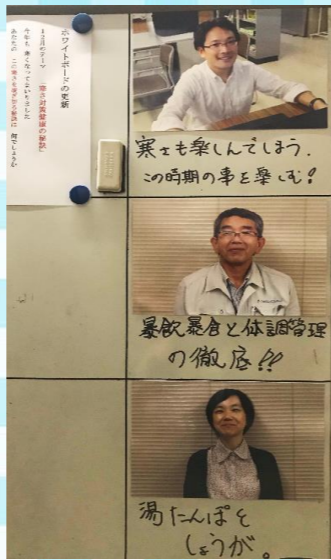 ホワイトボードの更新
12月のテーマ「寒さ対策健康の秘訣」
今年も、寒くなってまいりました
あなたの、この寒さを乗り切る秘訣は、何でしょうか
寒さも楽しんでしまう。
この時期の事を楽しむ!
暴飲暴食と体調管理
の徹底!!
湯たんぽと
しょうが。